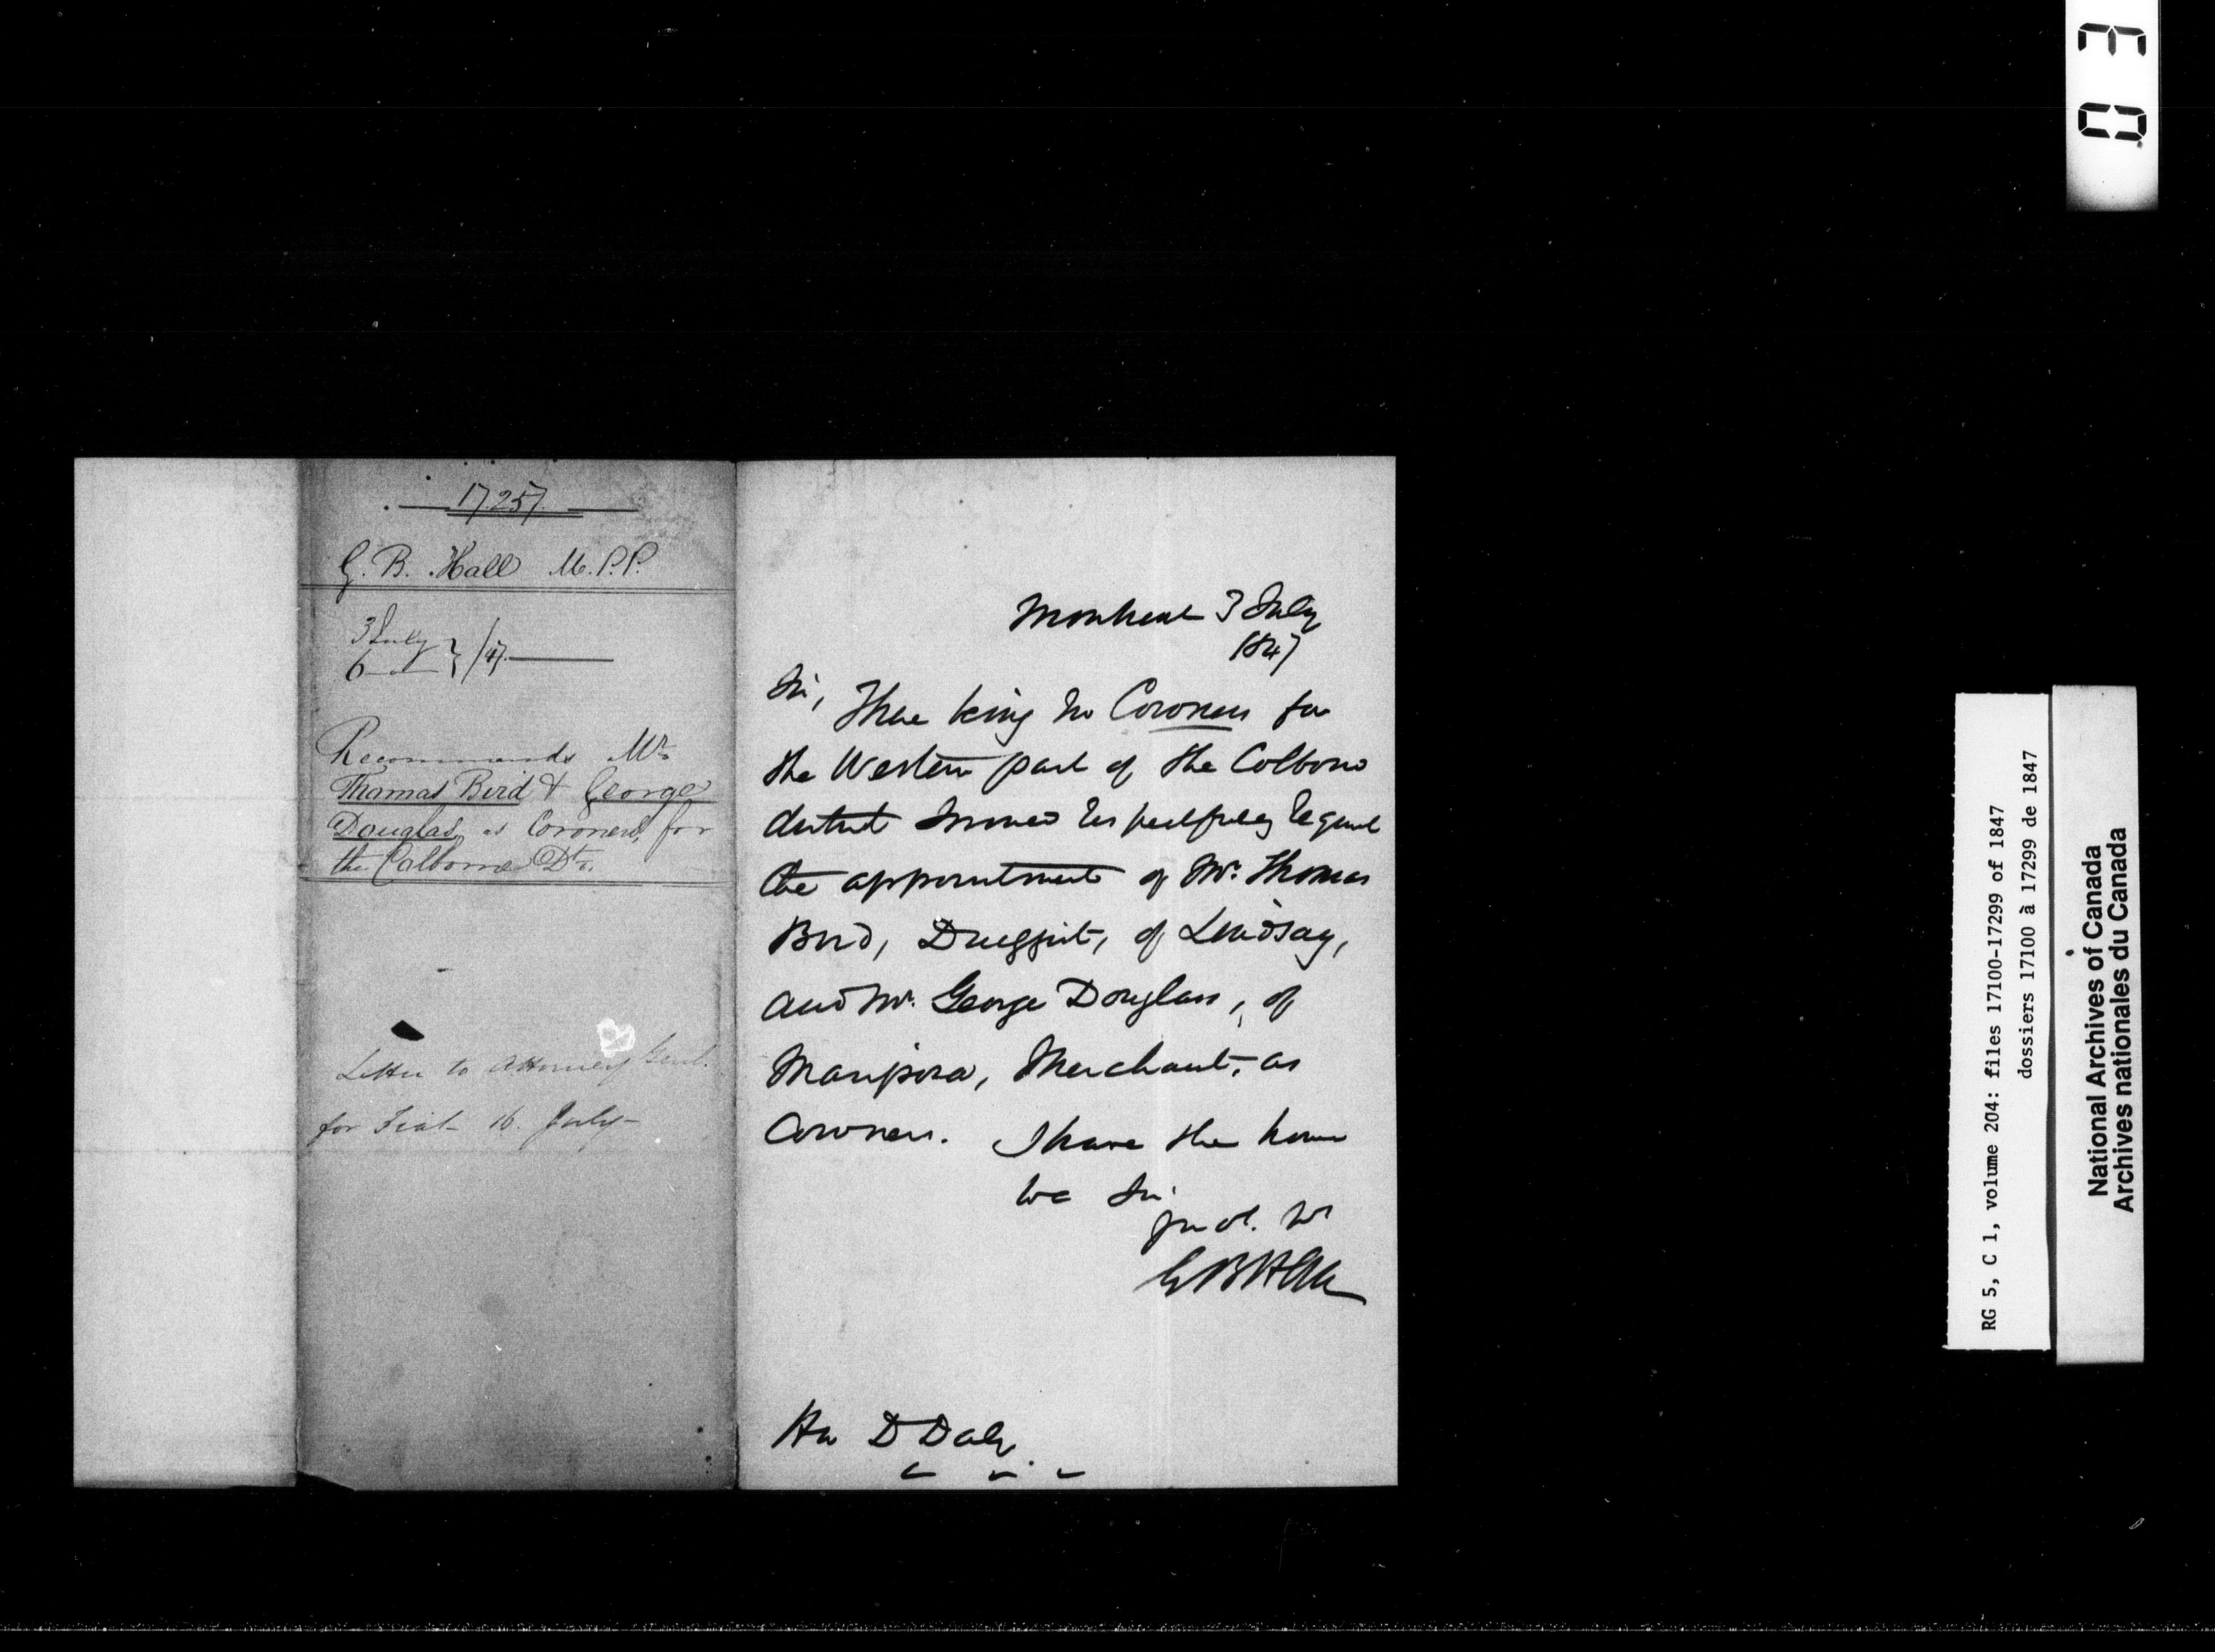 17257.
G. B. Hall M.P.P.
3 July
6 } /47.
Recommends Mr
Thomas Bird & George
Douglas, as Coroners, for
the Colborne Dt.
Letter to Attorney Genl.
for Fiat 16 July
Montreal 3 July
1847
Sir,
There being no Coroners for
the Western part of the Colborne
district I would respectfully request
the appointment of Mr. Thomas
Bird, Druggist, of Lindsay,
and Mr. George Douglass, of
Mariposa, Merchant, as
Coroners. I have the honor
Sir
G B Hall
Hon D Daly
03
RG 5, C 1, volume 204: files 17100-17299 of 1847
dossiers 17100 à 17299 de 1847
National Archives of Canada
Archives nationales du Canada